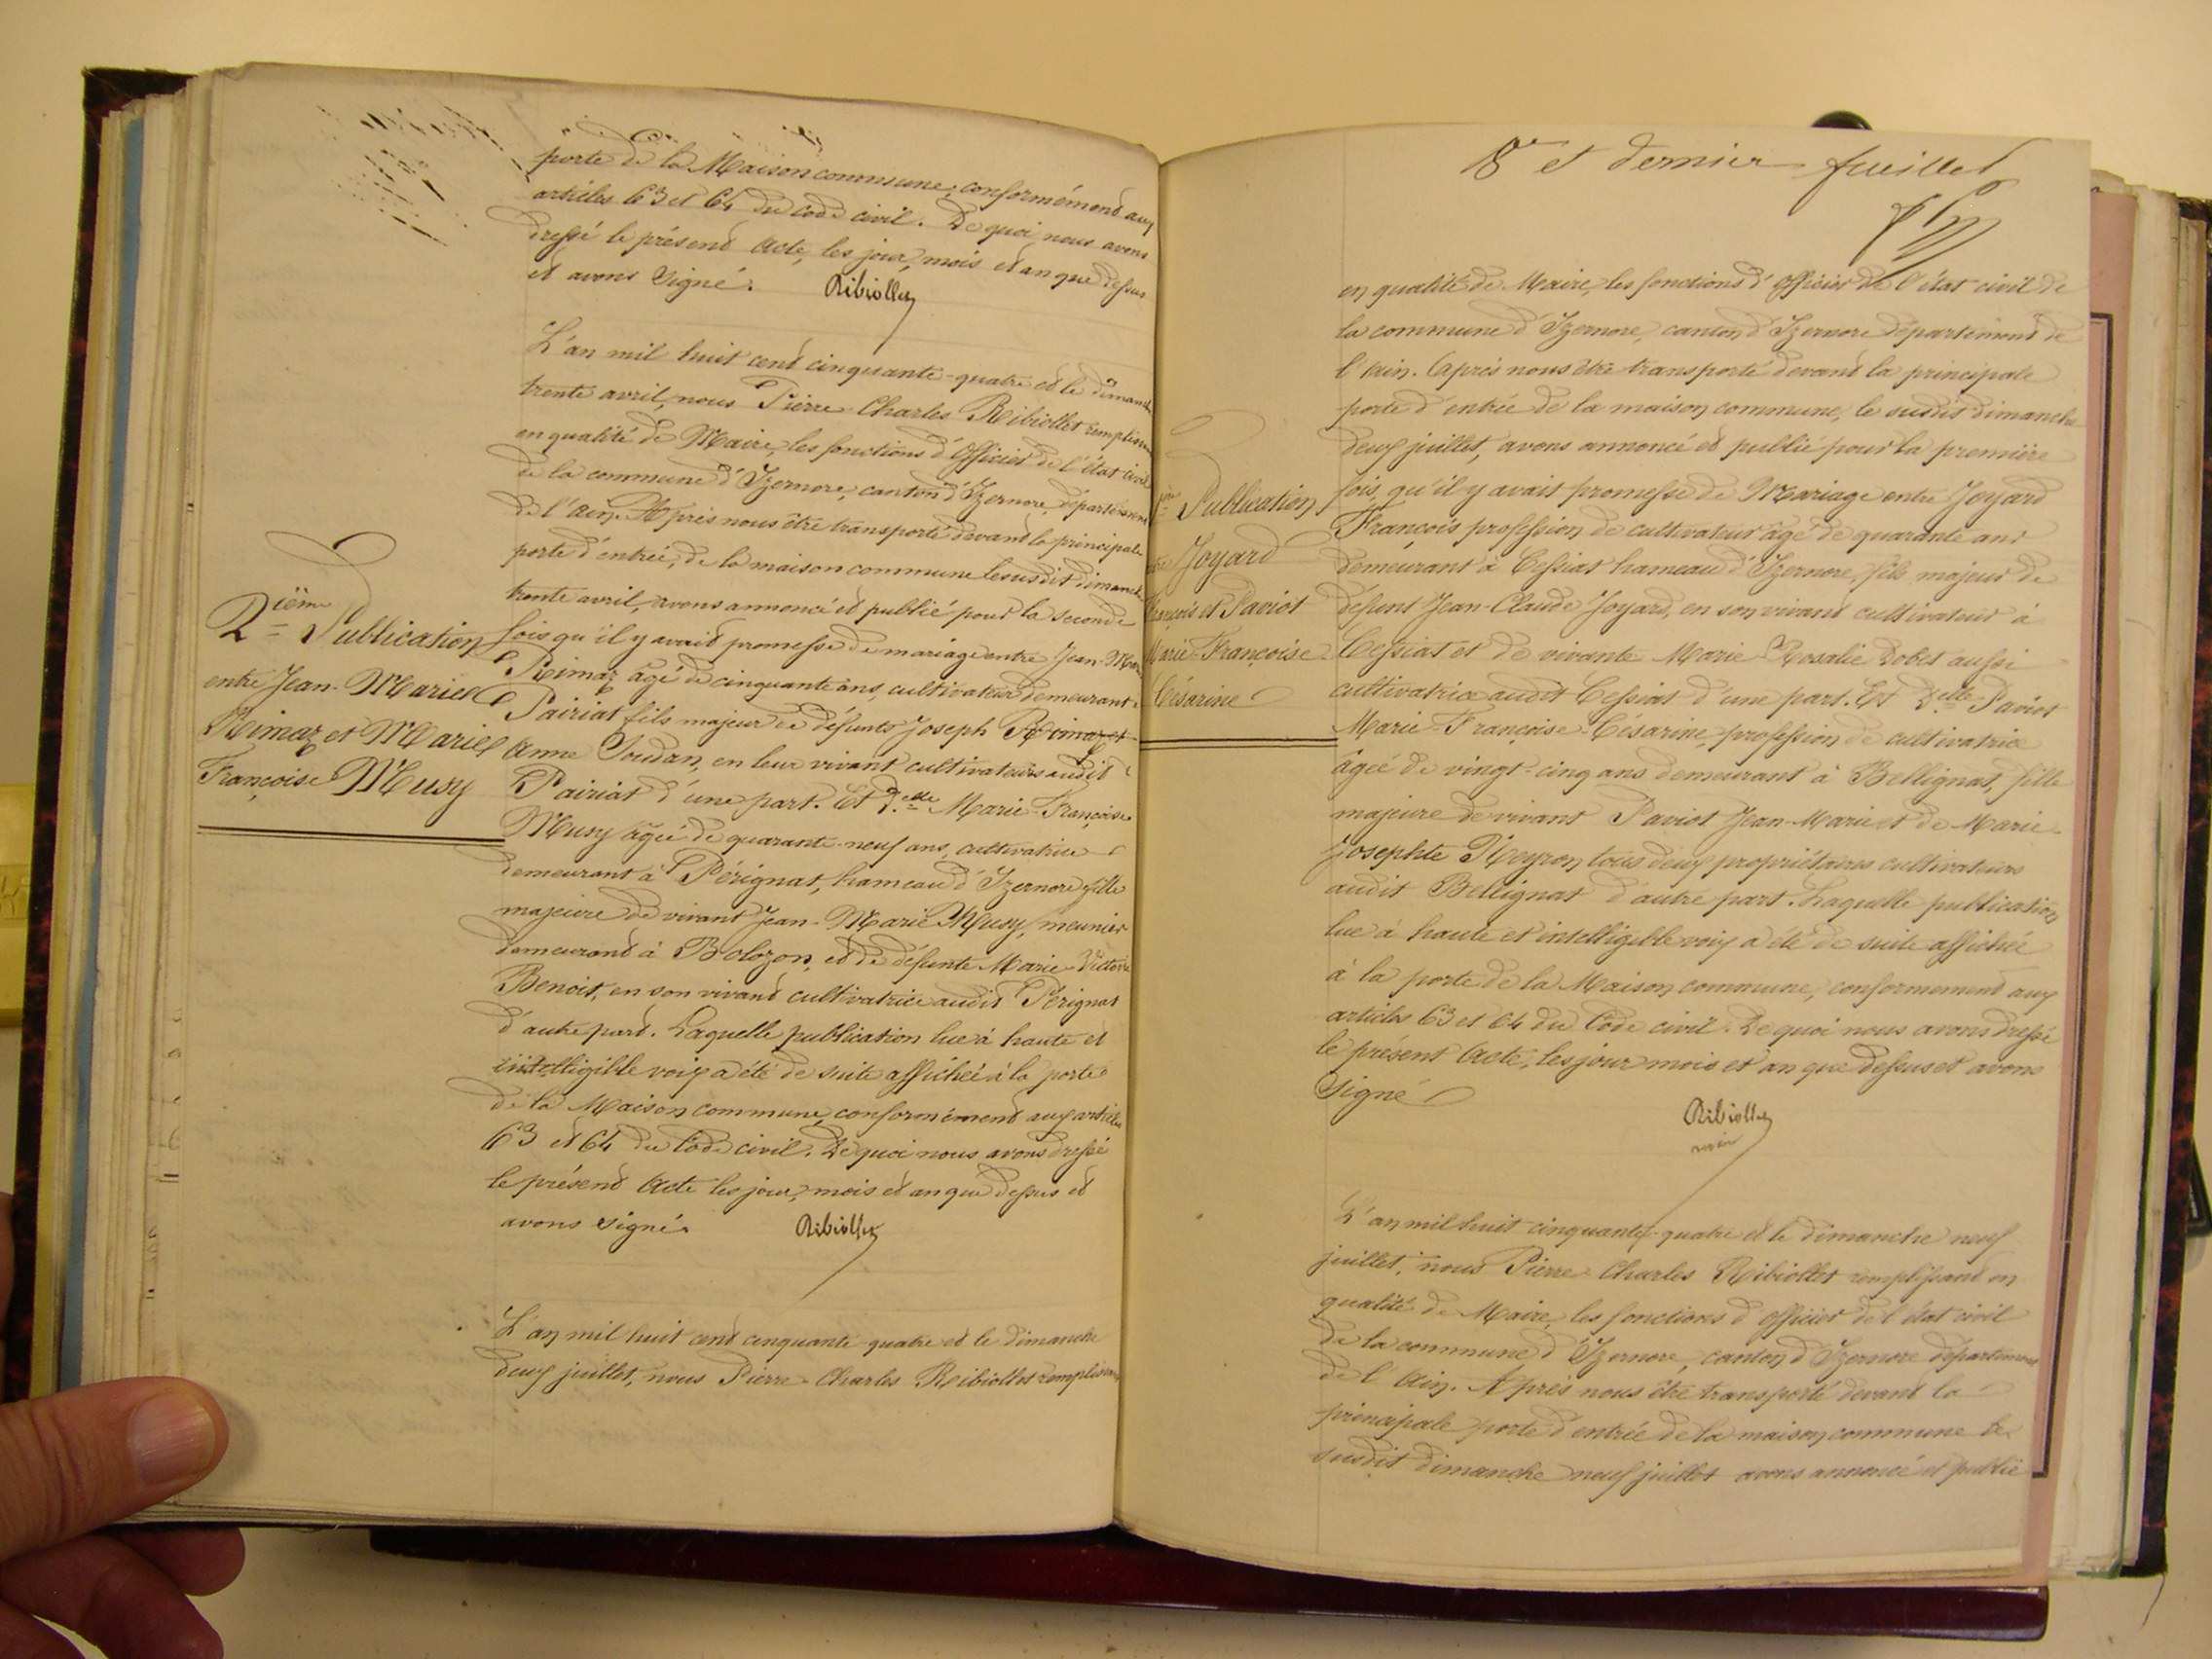 porte de la Maison commune, conformémend aux
articles 63 et 64 du code civil. De quoi nous avons
dressé le présend Acte, les jour, mois et an que dessus
et avons signé. Ribiollet
L'an mil huit cend cinquante-quatre et le dimanche
trente avril, nous Pierre Charles Ribiollet remplissant
en qualité de Maire, les fonctions d'Officier de l'état civil
de la commune d'Izernore, canton d'Izernore, département
de l'Ain. Après nous être transporté devand la principale
porte d'entrée, de la maison commune le susdit dimanche
trente avril, avons annoncé et publié pour la seconde
2ième Publication
entre Jean-Marie
Rimaz et Marie
Françoise Musy
fois qu'il y avait promesse de mariage entre Jean-Marie
Rimaz âgé de cinquante ans, cultivateur demeurant à
Pairiat fils majeur de défunts Joseph Rimaz et
Anne Joudan, en leur vivant cultivateurs audit
Pairiat d'une part. Et Delle Marie-Françoise
Musy âgée de quarante-neuf ans, cultivatrice
demeurant à Pérignat, hameau d'Izernore fille
majeure de vivant Jean-Marie Musy, meunier
demeurand à Bolozon, et de défunte Marie-Victoire
Benoit, en son vivand cultivatrice audit Pérignat
d'autre pard. Laquelle publication lue à haute et
intelligible voix a été de suite affichée à la porte
de la Maison commune, conformémend aux articles
63 et 64 du Code civil. De quoi nous avons dressé
le présend Acte les jour, mois et an que dessus et
avons signé. Ribiollet
L'an mil huit cend cinquante-quatre et le dimanche
deux juillet, nous Pierre-Charles Ribiollet remplissant
8e et dernier feuillet
en qualité de Maire, les fonctions d'Officier de l'état civil de
la commune d'Izernore, canton d'Izernore département de
l'Ain. Après nous être transporté devand la principale
porte d'entrée de la maison commune, le susdit dimanche
deux juillet, avons annoncé et publié pour la première
1ère Publication
entre Joyard
François et Paviot
Marie-Françoise
Césarine
fois, qu'il y avait promesse de Mariage entre Joyard
François profession de cultivateur âgé de quarante ans
demeurant à Cessiat hameau d'Izernore, fils majeur de
defunt Jean-Claude Joyard, en son vivand cultivateur à
Cessiat et de vivante Marie-Rosalie Dobet aussi
cultivatrice audit Cessiat d'une part. Et Delle Paviot
Marie-Françoise-Césarine, profession de cultivatrice
âgée de vingt-cinq ans demeurant à Bellignat, fille
majeure de vivant Paviot Jean-Marie et de Marie
Josephte Reyron tous deux propriétaires cultivateurs
audit Bellignat d'autre part. Laquelle publication
lue à haute et intelligible voix a été de suite affichée
à la porte de la Maison commune, conformemend aux
articles 63 et 64 du Code civil. De quoi nous avons dressé
le présent Acte, les jour mois et an que dessus et avons
signé
Ribiollet
L'an mil huit cinquante-quatre et le dimanche neuf
juillet, nous Pierre-Charles Ribiollet remplissand en
qualité de Maire, les fonctions d'officier de l'état civil
de la commune d'Izernore, canton d'Izernore département
de l'Ain. Après nous être transporté devand la
principale porte d'entrée de la maison commune le
susdit dimanche neuf juillet avons annoncé et publié